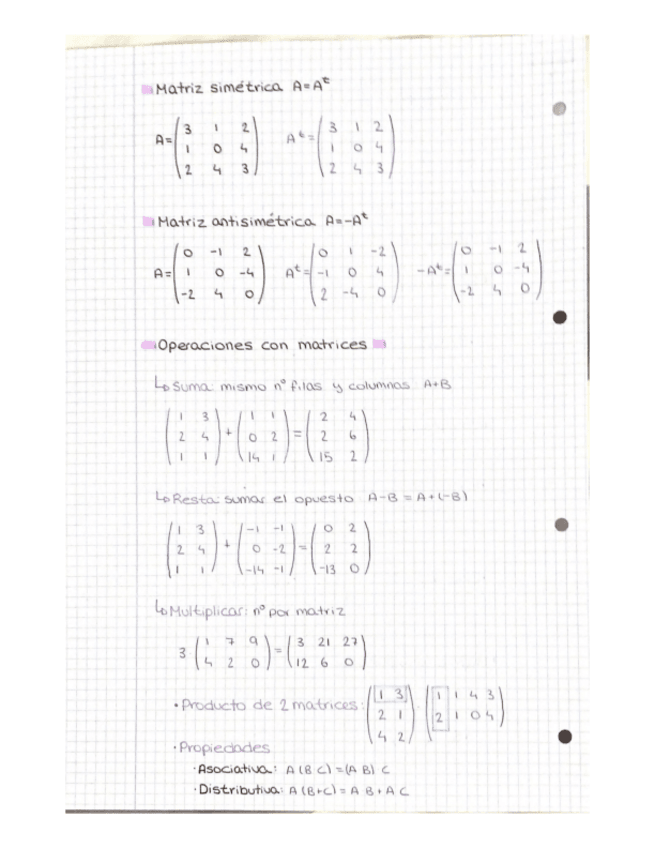 Matriz simétrica A=Aᵗ
A= (3 1 2 / 1 0 4 / 2 4 3) Aᵗ= (3 1 2 / 1 0 4 / 2 4 3)
Matriz antisimétrica A=-Aᵗ
A= (0 -1 2 / 1 0 -4 / -2 4 0) Aᵗ= (0 1 -2 / -1 0 4 / 2 -4 0) -Aᵗ= (0 -1 2 / 1 0 -4 / -2 4 0)
Operaciones con matrices
↳ Suma: mismo nº filas y columnas A+B
(1 3 / 2 4 / 1 1) + (1 1 / 0 2 / 14 1) = (2 4 / 2 6 / 15 2)
↳ Resta: sumar el opuesto A-B = A+(-B)
(1 3 / 2 4 / 1 1) + (-1 -1 / 0 -2 / -14 -1) = (0 2 / 2 2 / -13 0)
↳ Multiplicar: nº por matriz
3 (1 7 9 / 4 2 0) = (3 21 27 / 12 6 0)
· Producto de 2 matrices: (1 3 / 2 1 / 4 2) · (1 1 4 3 / 2 1 0 4)
· Propiedades
· Asociativa: A (B C) = (A B) C
· Distributiva: A (B+C) = A B + A C